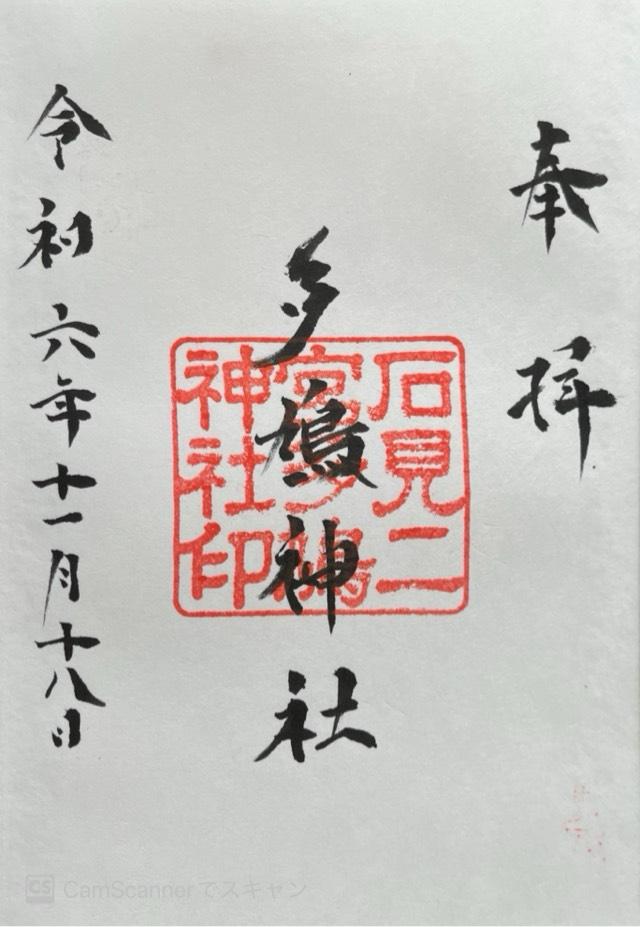 奉拝
多鳩神社
石見二
宮多鳩
神社印
令和六年十一月十八日
CS CamScannerでスキャン